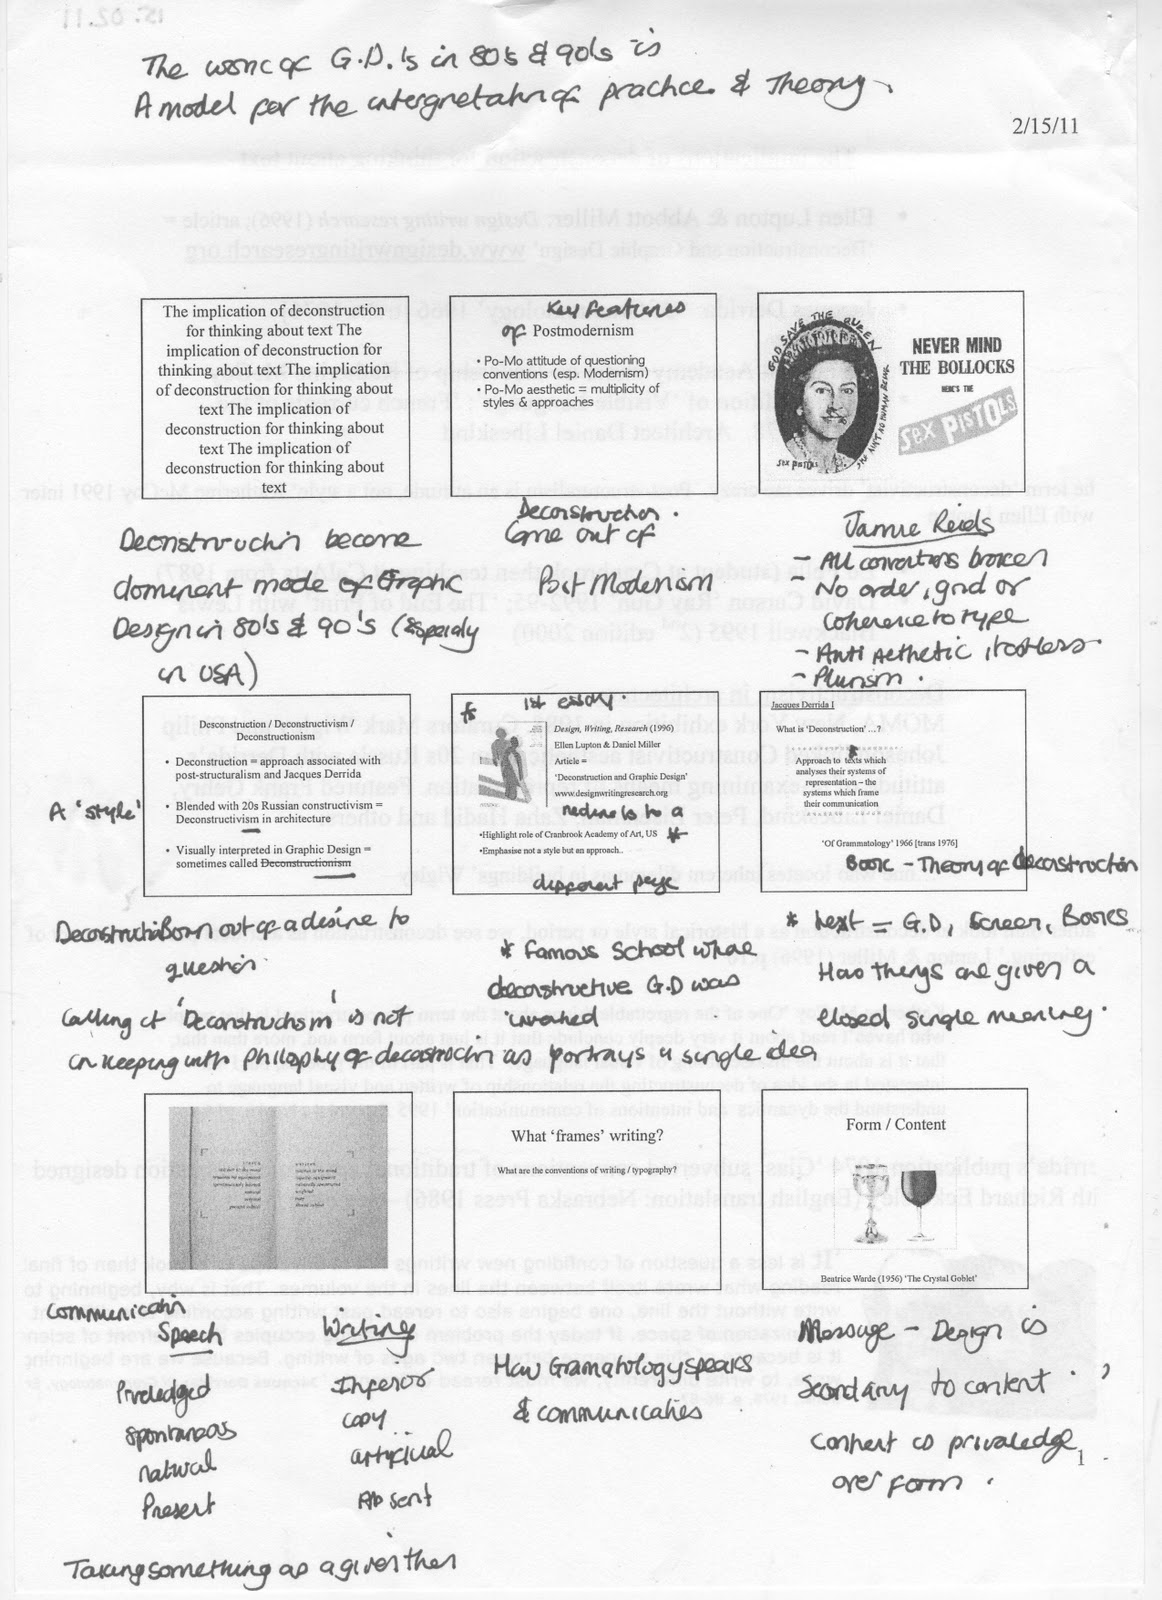 The work of G.D.'s in 80's & 90's is
A model for the interpretation of practice & Theory.
2/15/11
The implication of deconstruction
for thinking about text The
implication of deconstruction for
thinking about text The implication
of deconstruction for thinking about
text The implication of
deconstruction for thinking about
text The implication of
deconstruction for thinking about
text
Key features
of Postmodernism
• Po-Mo attitude of questioning
conventions (esp. Modernism)
• Po-Mo aesthetic = multiplicity of
styles & approaches
GOD SAVE THE QUEEN
SHE AIN'T NO HUMAN BEING
SEX PISTOLS
NEVER MIND
THE BOLLOCKS
HERE'S THE
SEX PISTOLS
Deconstruction become
dominant mode of Graphic
Design in 80's & 90's (Especialy
in USA)
Deconstruction.
Came out of
Post Modernism
Jamie Reids
- All conventions broken
- No order, grid or
Coherence to type
- Anti Aethetic
- Plurism.
Desconstruction / Deconstructivism /
Deconstructionism
• Deconstruction = approach associated with
post-structuralism and Jacques Derrida
• Blended with 20s Russian constructivism =
Deconstructivism in architecture
• Visually interpreted in Graphic Design =
sometimes called Deconstructionism
A 'style'
1st essay.
Design, Writing, Research (1996)
Ellen Lupton & Daniel Miller
Article =
'Deconstruction and Graphic Design'
www.designwritingresearch.org
to a
•Highlight role of Cranbrook Academy of Art, US *
•Emphasise not a style but an approach..
different page
Jacques Derrida I
What is 'Deconstruction'...?
Approach to texts which
analyses their systems of
representation – the
systems which frame
their communication
'Of Grammatology' 1966 [trans 1976]
Book - Theory of deconstruction
Deconstruction Born out of a desire to
question.
Calling it 'Deconstructism' is not
in keeping with Philosphy of deconstructin as portrays a single idea
* Famous School whare
deconstructive G.D was
* text = G.D, Screen, Books
How things are given a
closed single meaning.
What 'frames' writing?
What are the conventions of writing / typography?
Form / Content
Beatrice Warde (1956) 'The Crystal Goblet'
Communicatin
Speech
Priveledged
spontaneous
natural
Present
Writing
Inferior
copy
artificial
Absent
How Gramatology speaks
& communicates
Message - Design is
Secondary to content.
Content is privaledge
over form.
1
Taking something as a given then